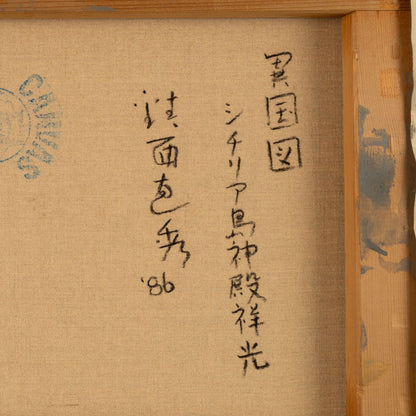 異国図
シチリア島神殿祥光
鎮西直秀
'86
CANVAS